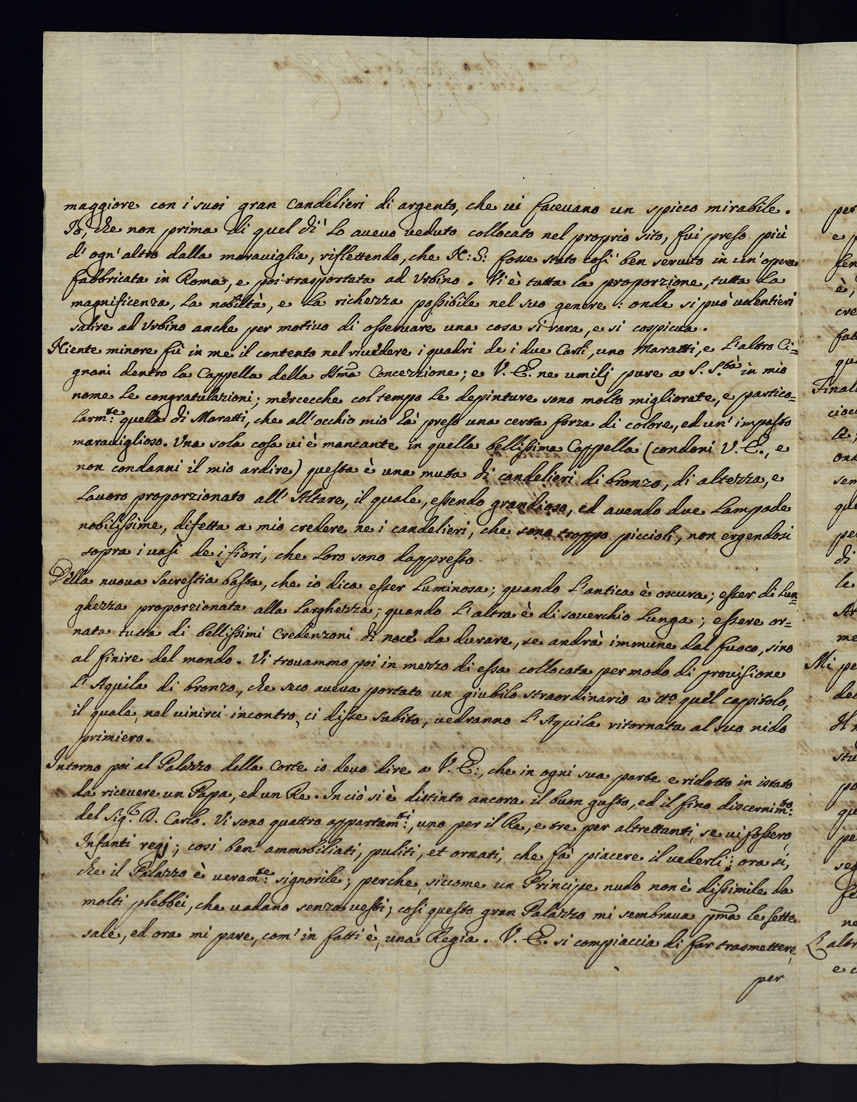 maggiore con i suoi gran Candelieri di argento, che vi facevano un spicco mirabile.
Io, che non prima di quel dì lo avevo veduto collocato nel proprio sito, fui preso più
d'ogn'altro dalla maraviglia, riflettendo, che N: S: fosse stato così ben servito in un'opera
fabbricata in Roma, e poi trasportata ad Urbino. Vi è tutta la proporzione, tutta la
magnificenza, la nobiltà, e la richezza possibile nel suo genere: onde si può volentieri
salire ad Urbino anche per motivo di osservare una cosa sì rara, e sì cospicua.
Niente minore fù in me il contento nel rivedere i quadri de i due Carli, uno Maratti, e l'altro Ci=
gnani dentro la Cappella della Sma Concezzione; e V. E. ne umilj pure a S. Stà in mio
nome le congratulazioni; mercecche col tempo le depinture sono molto migliorate, e partico=
larmte quella di Maratti, che all'occhio mio hà preso una certa forza di colore, ed un'impasto
maraviglioso. Una sola cosa vi è mancante in quella bellissima Cappella (condoni V. E., e
non condanni il mio ardire) questa è una muta di candelieri di bronzo, di altezza, e
lavoro proporzionato all'Altare, il quale, essendo grandioso, ed avendo due Lampade
nobilissime, difetta a mio credere ne i candelieri, che sono troppo piccioli, non ergendosi
sopra i vasi de i fiori, che loro sono dappresso.
Della nuova Sacrestia basta, che io dica esser luminosa; quando l'antica è oscura; esser di lun=
ghezza proporzionata alla larghezza; quando l'altra è di soverchio lunga; essere or=
nata tutta di bellissimi Credenzoni di noce da durare, se andrà immune dal fuoco, sino
al finire del mondo. Vi trovammo poi in mezzo di essa collocata per modo di provisione
l'Aquila di bronzo, che seco aveva portato un giubilo straordinario a tto quel capitolo,
il quale, nel vinirci incontro, ci disse subito, vedranno l'Aquila ritornata al suo nido
primiero.
Intorno poi al Palazzo della Corte io devo dire a V. E:, che in ogni sua parte è ridotto in istato
da ricevere un Papa, ed un Re. In ciò si è distinto ancora il buon gusto, ed il fino discernimto:
del Sigr D. Carlo. Vi sono quattro appartamti:, uno per il Re, e tre per altrettanti, se vi fossero,
Infanti regj; così ben ammobiliati, puliti, et ornati, che fà piacere il vederli; ora sì,
che il Palazzo è veramte: signorile; perche siccome un Principe nudo non è dissimile da
molti plebbei, che vadano senza vesti; così questo gran Palazzo mi sembrava pma le sette
sale, ed ora mi pare, com'in fatti è, una Regia. V. E. si compiaccia di far trasmettere,
per